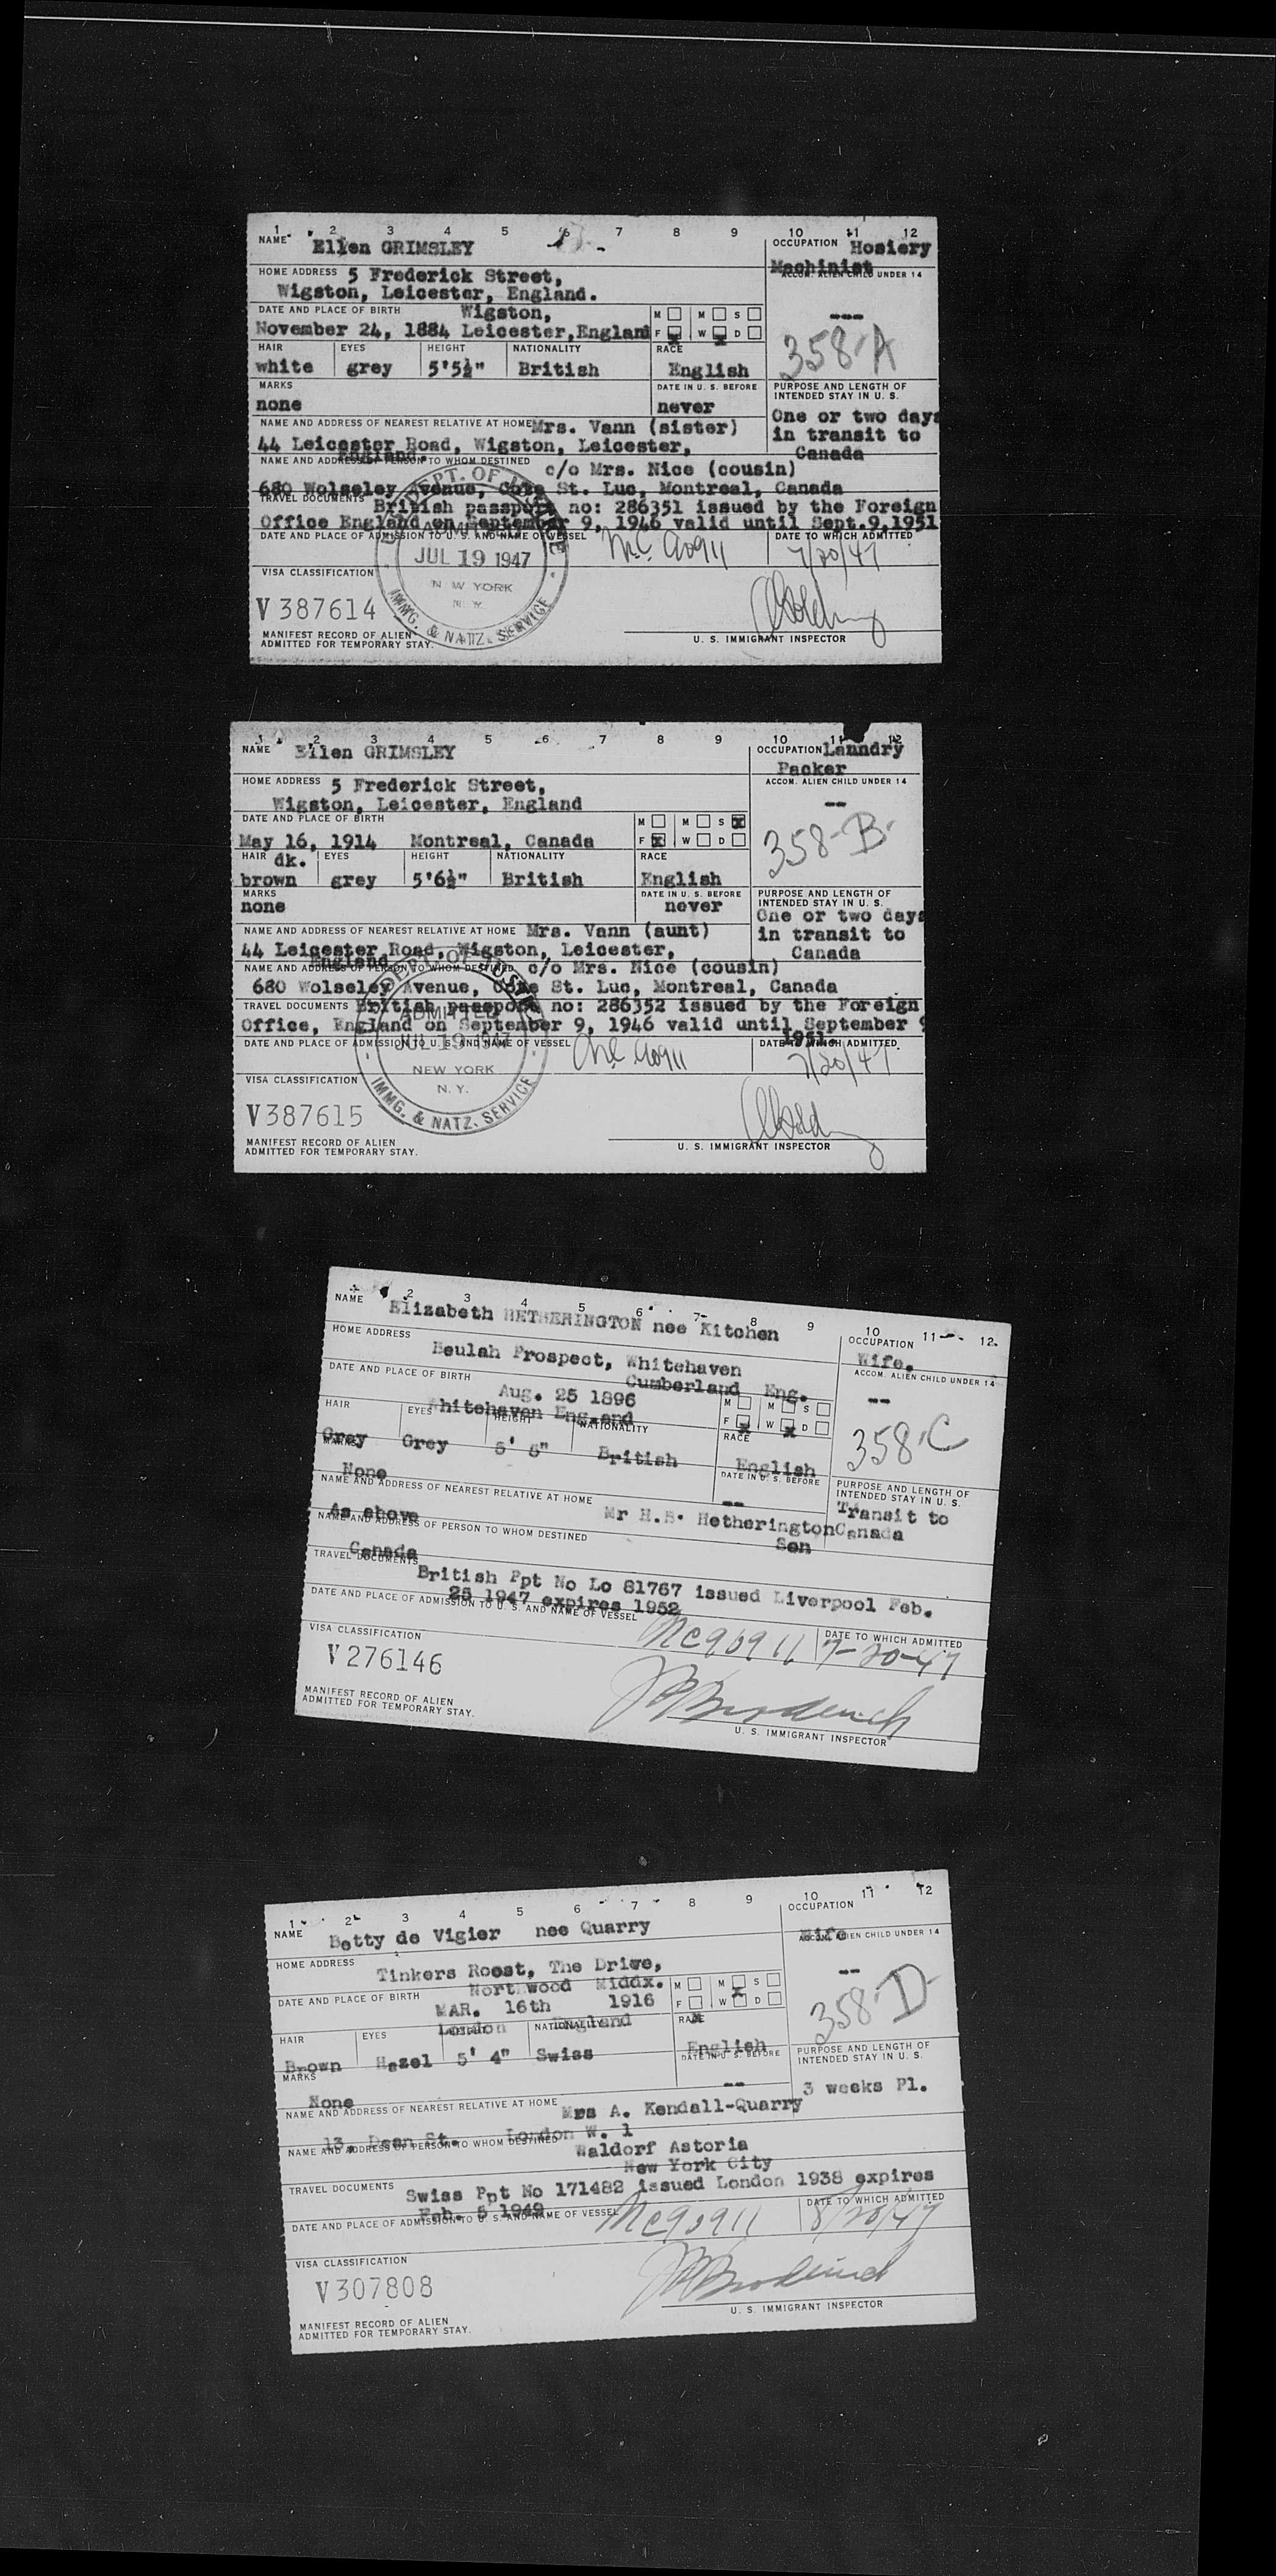 1 2 3 4 5 6 7 8 9 10 11 12
NAME Ellen GRIMSLEY
OCCUPATION Hosiery
Machinist
ACCOM. ALIEN CHILD UNDER 14
---
358-A
HOME ADDRESS 5 Frederick Street,
Wigston, Leicester, England.
DATE AND PLACE OF BIRTH Wigston,
November 24, 1884 Leicester, England
M M S
F X W X D
HAIR EYES HEIGHT NATIONALITY RACE
white grey 5'5½" British English
MARKS DATE IN U. S. BEFORE
none never
PURPOSE AND LENGTH OF
INTENDED STAY IN U. S.
One or two days
in transit to
Canada
NAME AND ADDRESS OF NEAREST RELATIVE AT HOME Mrs. Vann (sister)
44 Leicester Road, Wigston, Leicester,
England.
NAME AND ADDRESS OF PERSON TO WHOM DESTINED
c/o Mrs. Nice (cousin)
680 Wolseley Avenue, Cote St. Luc, Montreal, Canada
TRAVEL DOCUMENTS British passport no: 286351 issued by the Foreign
Office England on September 9, 1946 valid until Sept.9,1951
DATE AND PLACE OF ADMISSION TO U. S. AND NAME OF VESSEL NC 90911
DATE TO WHICH ADMITTED
7/20/47
DEPT. OF JUSTICE
ADMITTED
JUL 19 1947
NEW YORK
N. Y.
IMMG. & NATZ. SERVICE
VISA CLASSIFICATION
V387614
MANIFEST RECORD OF ALIEN
ADMITTED FOR TEMPORARY STAY.
U. S. IMMIGRANT INSPECTOR
1 2 3 4 5 6 7 8 9 10 11 12
NAME Ellen GRIMSLEY
OCCUPATION Lanndry
Packer
ACCOM. ALIEN CHILD UNDER 14
--
358-B
HOME ADDRESS 5 Frederick Street,
Wigston, Leicester, England
DATE AND PLACE OF BIRTH
May 16, 1914 Montreal, Canada
M M S X
F X W D
HAIR dk. EYES HEIGHT NATIONALITY RACE
brown grey 5'6½" British English
MARKS DATE IN U. S. BEFORE
none never
PURPOSE AND LENGTH OF
INTENDED STAY IN U. S.
One or two days
in transit to
Canada
NAME AND ADDRESS OF NEAREST RELATIVE AT HOME Mrs. Vann (aunt)
44 Leicester Road, Wigston, Leicester,
England
NAME AND ADDRESS OF PERSON TO WHOM DESTINED c/o Mrs. Nice (cousin)
680 Wolseley Avenue, Cote St. Luc, Montreal, Canada
TRAVEL DOCUMENTS British passport no: 286352 issued by the Foreign
Office, England on September 9, 1946 valid until September 9
1951
DATE AND PLACE OF ADMISSION TO U. S. AND NAME OF VESSEL NC 90911
DATE TO WHICH ADMITTED.
7/20/47
DEPT. OF JUSTICE
ADMITTED
JUL 19 1947
NEW YORK
N. Y.
IMMG. & NATZ. SERVICE
VISA CLASSIFICATION
V387615
MANIFEST RECORD OF ALIEN
ADMITTED FOR TEMPORARY STAY.
U. S. IMMIGRANT INSPECTOR
2 3 4 5 6 7 8 9 10 11 12
NAME Elizabeth HETHERINGTON nee Kitchen
OCCUPATION
Wife.
ACCOM. ALIEN CHILD UNDER 14
--
358-C
HOME ADDRESS
Beulah Prospect, Whitehaven
Cumberland Eng.
DATE AND PLACE OF BIRTH
Aug. 25 1896
Whitehaven England
M M S
F X W X D
HAIR EYES HEIGHT NATIONALITY RACE
Grey Grey 5' 5" British English
MARKS DATE IN U. S. BEFORE
None --
PURPOSE AND LENGTH OF
INTENDED STAY IN U. S.
Transit to
Canada
NAME AND ADDRESS OF NEAREST RELATIVE AT HOME
Mr H.B. Hetherington
As above Son
NAME AND ADDRESS OF PERSON TO WHOM DESTINED
Canada
TRAVEL DOCUMENTS
British Ppt No Lo 81767 issued Liverpool Feb.
25 1947 expires 1952
DATE AND PLACE OF ADMISSION TO U. S. AND NAME OF VESSEL NC90911
DATE TO WHICH ADMITTED
7-20-47
VISA CLASSIFICATION
V276146
MANIFEST RECORD OF ALIEN
ADMITTED FOR TEMPORARY STAY.
U. S. IMMIGRANT INSPECTOR
1 2 3 4 5 6 7 8 9 10 11 12
NAME Betty de Vigier nee Quarry
OCCUPATION
Wife
ACCOM. ALIEN CHILD UNDER 14
--
358-D
HOME ADDRESS Tinkers Roost, The Drive,
Northwood Middx.
DATE AND PLACE OF BIRTH
MAR. 16th 1916
London England
M M S
F W D
HAIR EYES NATIONALITY RACE
Brown Hazel 5' 4" Swiss English
MARKS DATE IN U. S. BEFORE
None --
PURPOSE AND LENGTH OF
INTENDED STAY IN U. S.
3 weeks Pl.
NAME AND ADDRESS OF NEAREST RELATIVE AT HOME Mrs A. Kendall-Quarry
13, Dean St. London W. 1
NAME AND ADDRESS OF PERSON TO WHOM DESTINED
Waldorf Astoria
New York City
TRAVEL DOCUMENTS Swiss Ppt No 171482 issued London 1938 expires
Feb. 5 1949
DATE AND PLACE OF ADMISSION TO U. S. AND NAME OF VESSEL NC90911
DATE TO WHICH ADMITTED
8/20/47
VISA CLASSIFICATION
V307808
MANIFEST RECORD OF ALIEN
ADMITTED FOR TEMPORARY STAY.
U. S. IMMIGRANT INSPECTOR